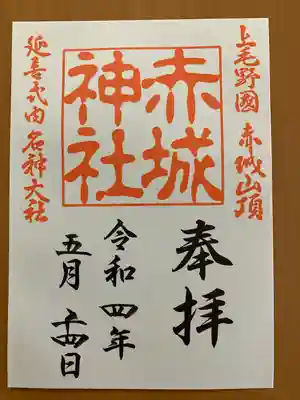 上毛野國 赤城山頂
赤城
神社
延喜式内 名神大社
奉拝
令和四年
五月十四日